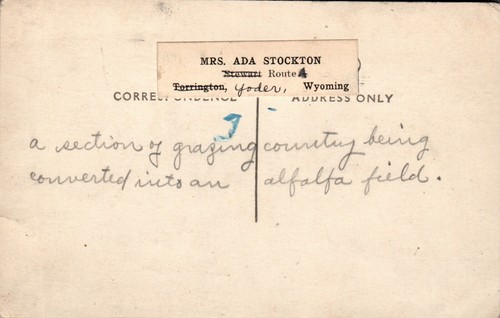 MRS. ADA STOCKTON
Stewart Route 4
Torrington, Yoder, Wyoming
CORRESPONDENCE ADDRESS ONLY
a section of grazing country being
converted into an alfalfa field.